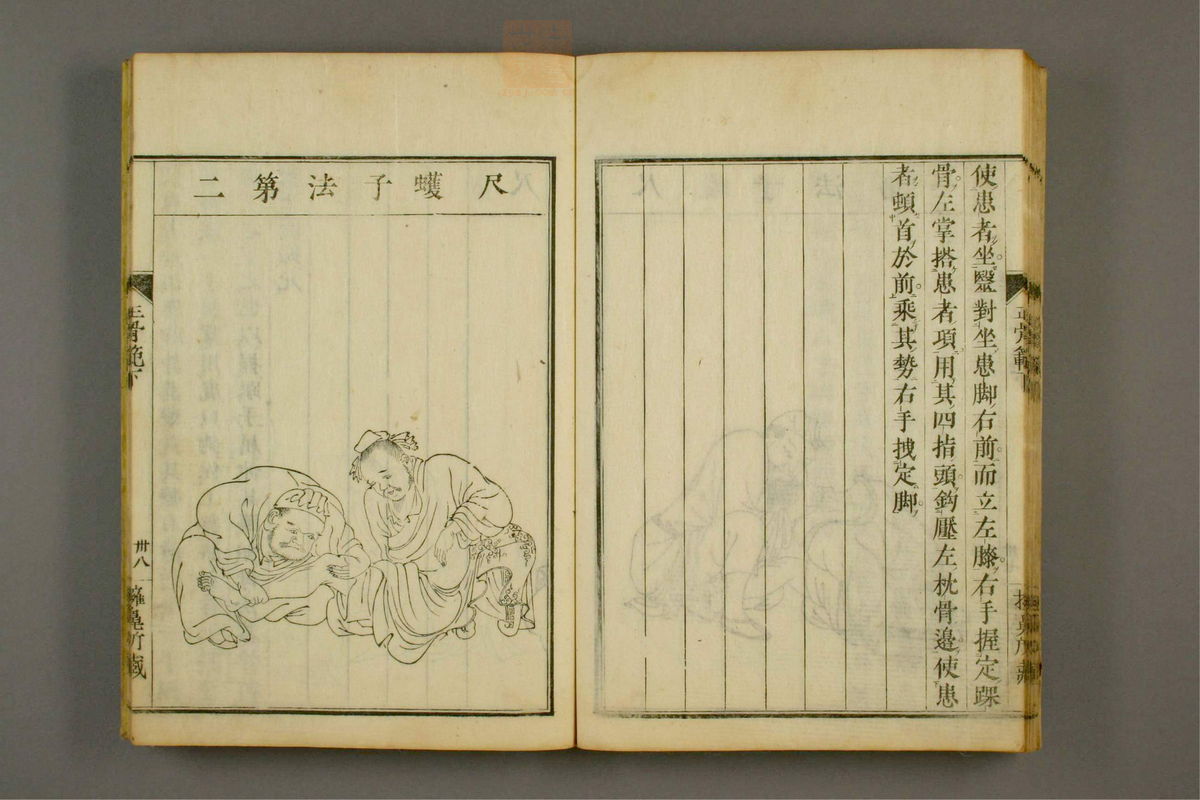 使患者坐毉對坐患脚右前而立左膝右手握定踝
骨左掌搭患者項用其四指頭鈎壓左枕骨邊使患
者頓首於前乘其勢右手拽定脚
尺蠖子法第二
正骨範下
卅八